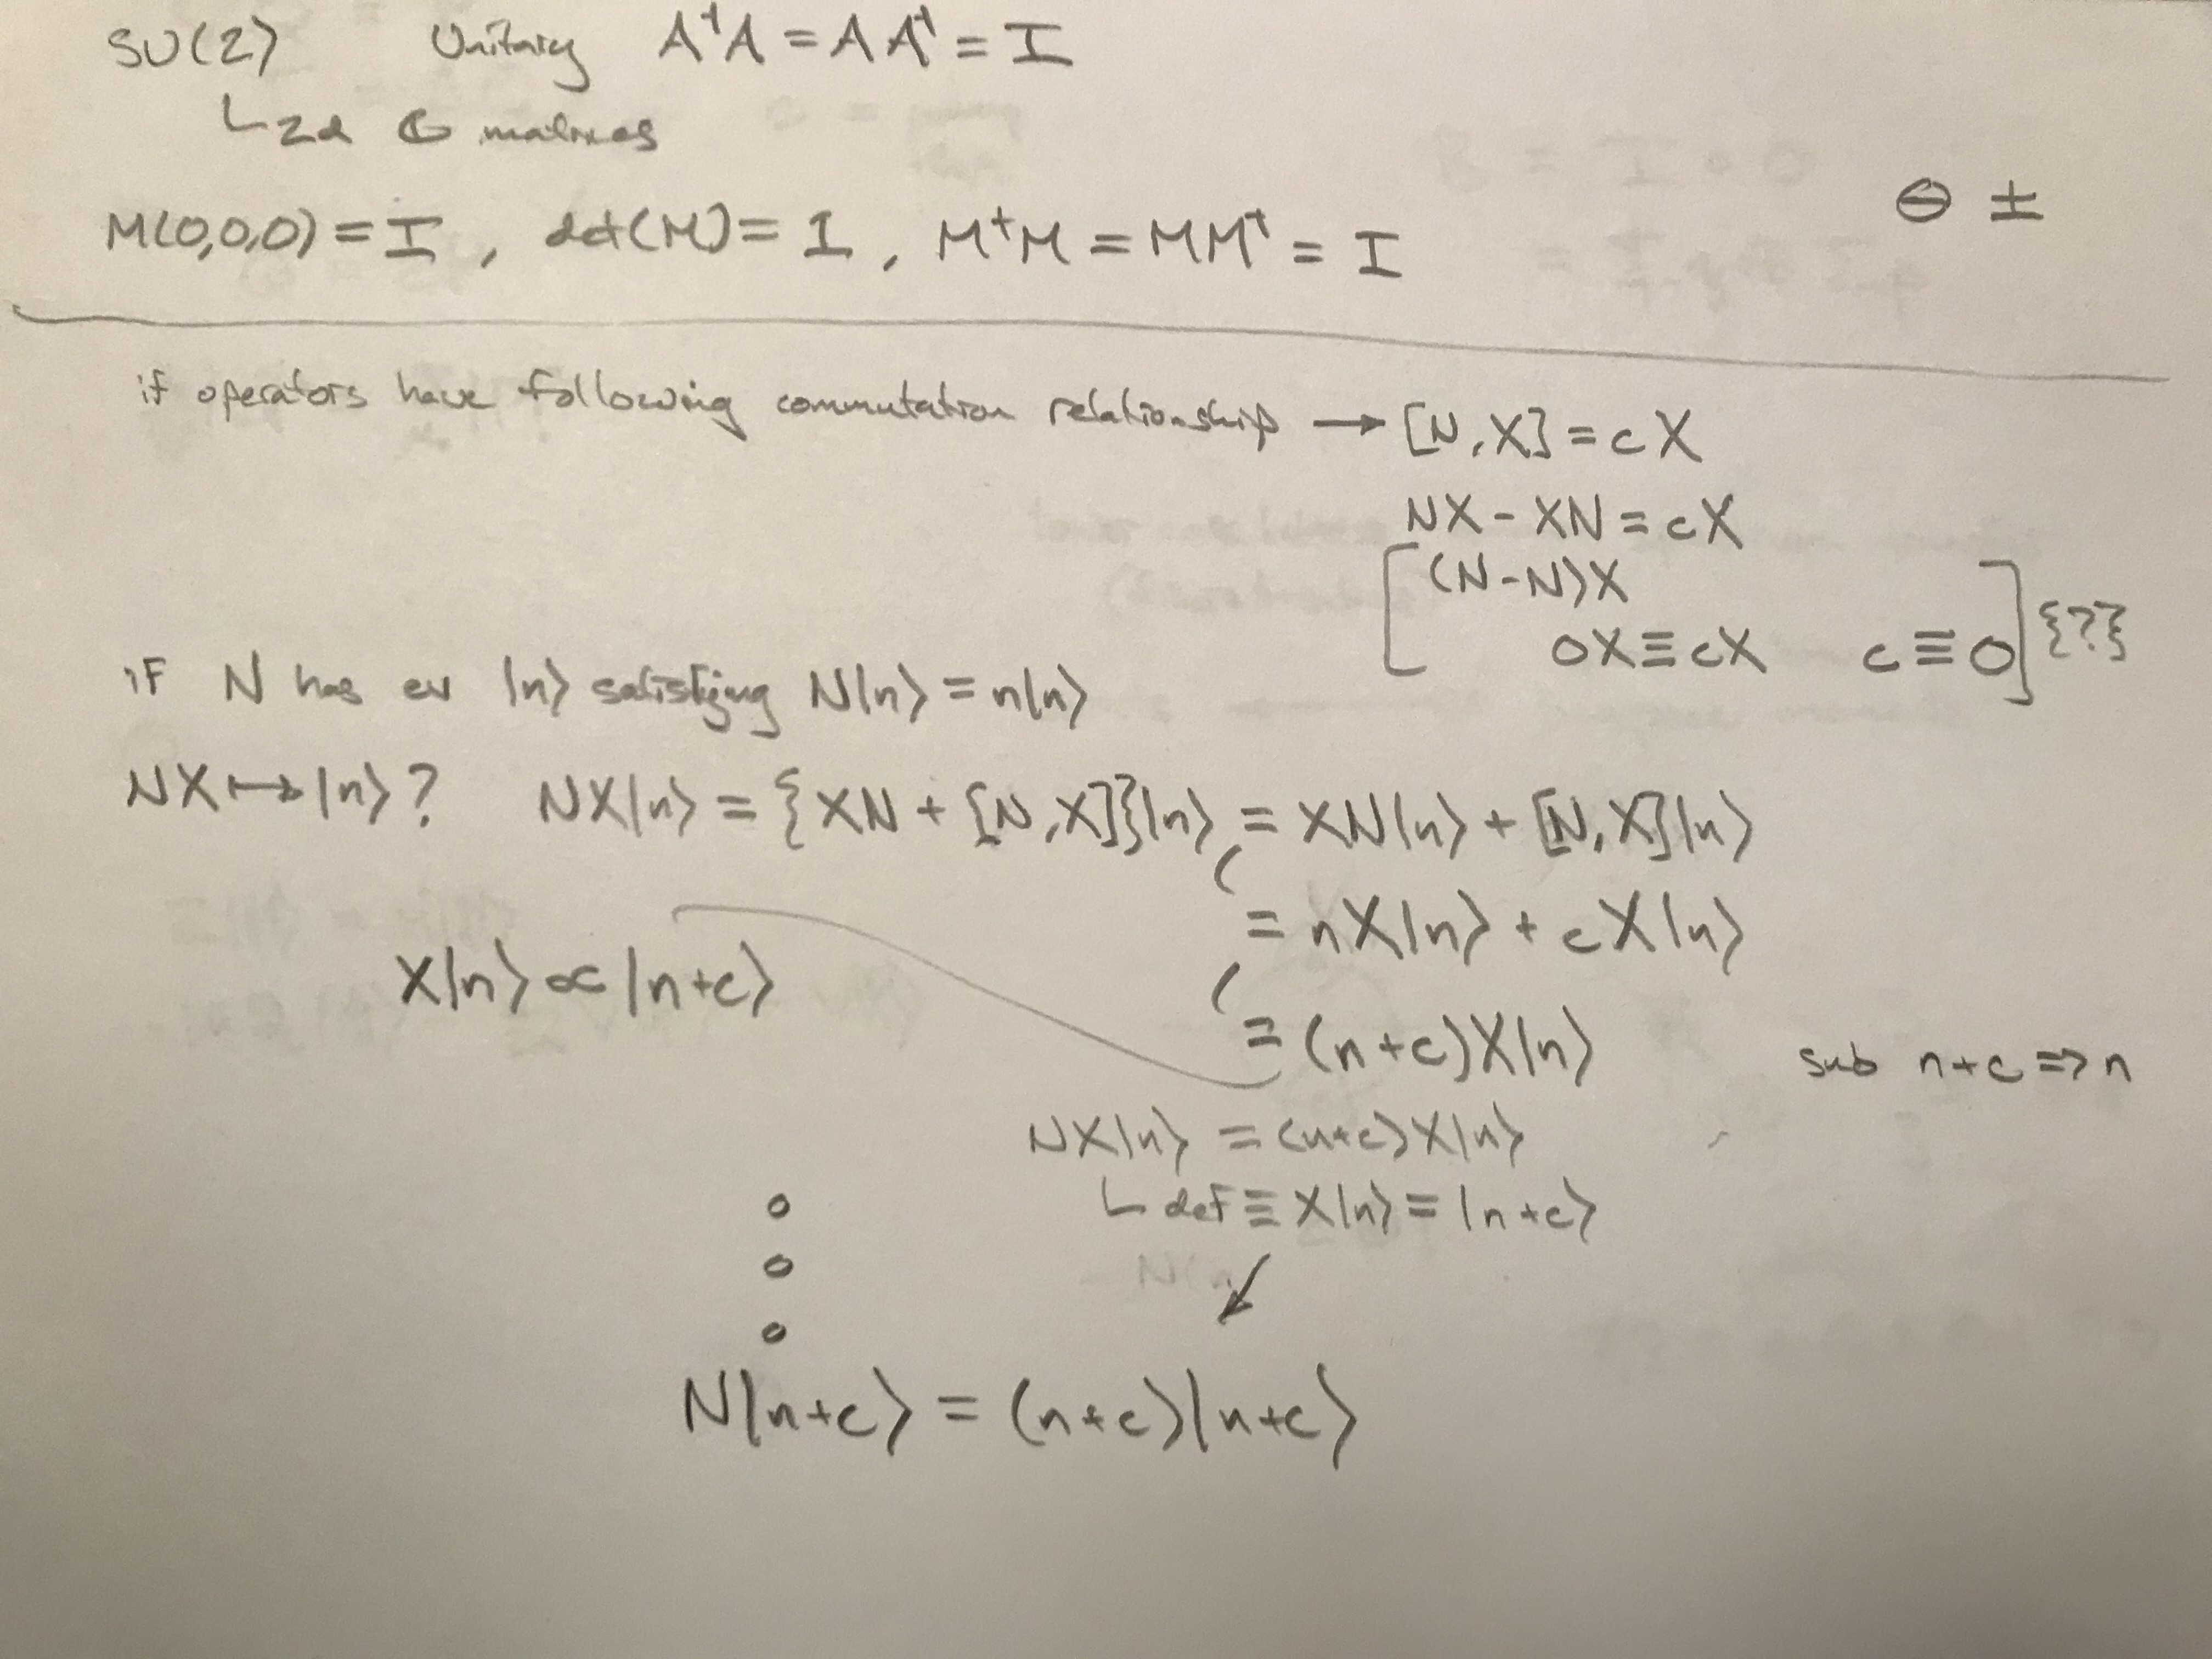 SU(2) Unitary A†A = AA† = I
2d ℂ matrices
M(0,0,0) = I , det(M) = I , M†M = MM† = I
⊖ ±
if operators have following commutation relationship → [N,X] = cX
NX - XN = cX
(N-N)X
0X ≡ cX c ≡ 0 {?}
if N has ev |n⟩ satisfying N|n⟩ = n|n⟩
NX ↦ |n⟩? NX|n⟩ = {XN + [N,X]}|n⟩ = XN|n⟩ + [N,X]|n⟩
= nX|n⟩ + cX|n⟩
X|n⟩ ∝ |n+c⟩
= (n+c)X|n⟩ sub n+c => n
NX|n⟩ = (n+c)X|n⟩
def ≡ X|n⟩ = |n+c⟩
N|n+c⟩ = (n+c)|n+c⟩